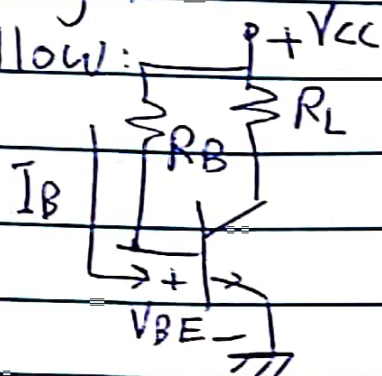 llow:
+VCC
RL
RB
IB
+
VBE -